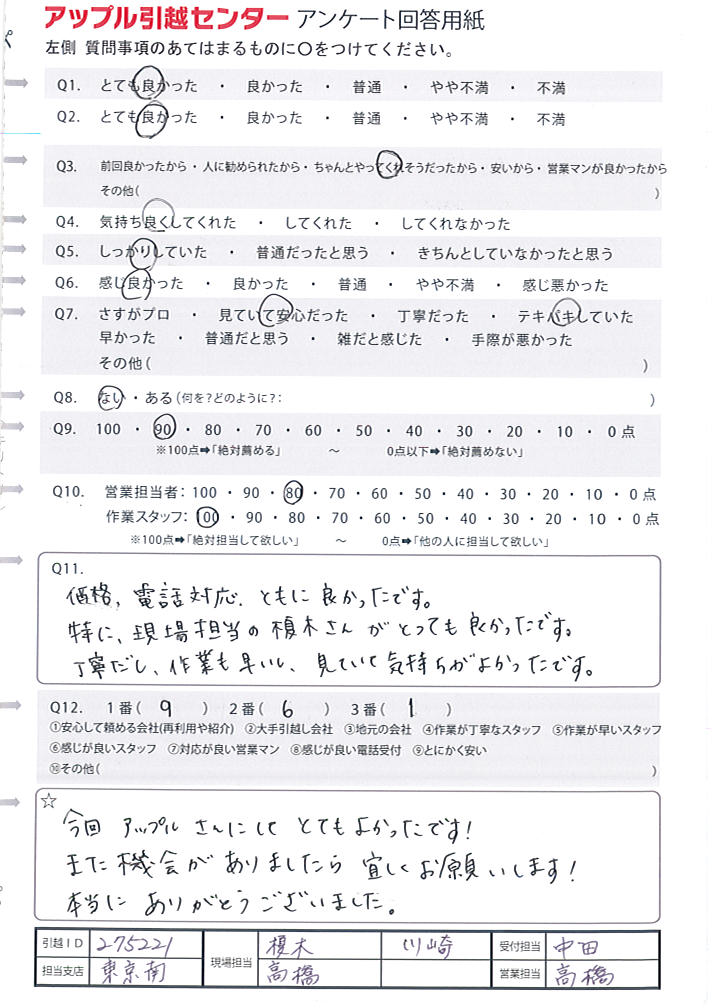 アップル引越センター アンケート回答用紙
左側 質問事項のあてはまるものに〇をつけてください。
Q1. とても良かった ・ 良かった ・ 普通 ・ やや不満 ・ 不満
Q2. とても良かった ・ 良かった ・ 普通 ・ やや不満 ・ 不満
Q3. 前回良かったから・人に勧められたから・ちゃんとやってくれそうだったから・安いから・営業マンが良かったから
その他( )
Q4. 気持ち良くしてくれた ・ してくれた ・ してくれなかった
Q5. しっかりしていた ・ 普通だったと思う ・ きちんとしていなかったと思う
Q6. 感じ良かった ・ 良かった ・ 普通 ・ やや不満 ・ 感じ悪かった
Q7. さすがプロ ・ 見ていて安心だった ・ 丁寧だった ・ テキパキしていた
早かった ・ 普通だと思う ・ 雑だと感じた ・ 手際が悪かった
その他( )
Q8. ない・ある(何を?どのように?: )
Q9. 100 ・ 90 ・ 80 ・ 70 ・ 60 ・ 50 ・ 40 ・ 30 ・ 20 ・ 10 ・ 0点
※100点➡「絶対薦める」 ～ 0点以下➡「絶対薦めない」
Q10. 営業担当者:100 ・ 90 ・ 80 ・ 70 ・ 60 ・ 50 ・ 40 ・ 30 ・ 20 ・ 10 ・ 0点
作業スタッフ:100 ・ 90 ・ 80 ・ 70 ・ 60 ・ 50 ・ 40 ・ 30 ・ 20 ・ 10 ・ 0点
※100点➡「絶対担当して欲しい」 ～ 0点➡「他の人に担当して欲しい」
Q11.
価格、電話対応、ともに良かったです。
特に、現場担当の榎木さんがとっても良かったです。
丁寧だし、作業も早いし、見ていて気持ちがよかったです。
Q12. 1番( 9 ) 2番( 6 ) 3番( 1 )
①安心して頼める会社(再利用や紹介) ②大手引越し会社 ③地元の会社 ④作業が丁寧なスタッフ ⑤作業が早いスタッフ
⑥感じが良いスタッフ ⑦対応が良い営業マン ⑧感じが良い電話受付 ⑨とにかく安い
⑩その他( )
☆
今回 アップル さんにして とてもよかったです!
また機会がありましたら 宜しくお願いします!
本当に ありがとうございました。
引越ID 275221 現場担当 榎木 川崎 受付担当 中田
担当支店 東京南 高橋 営業担当 高橋